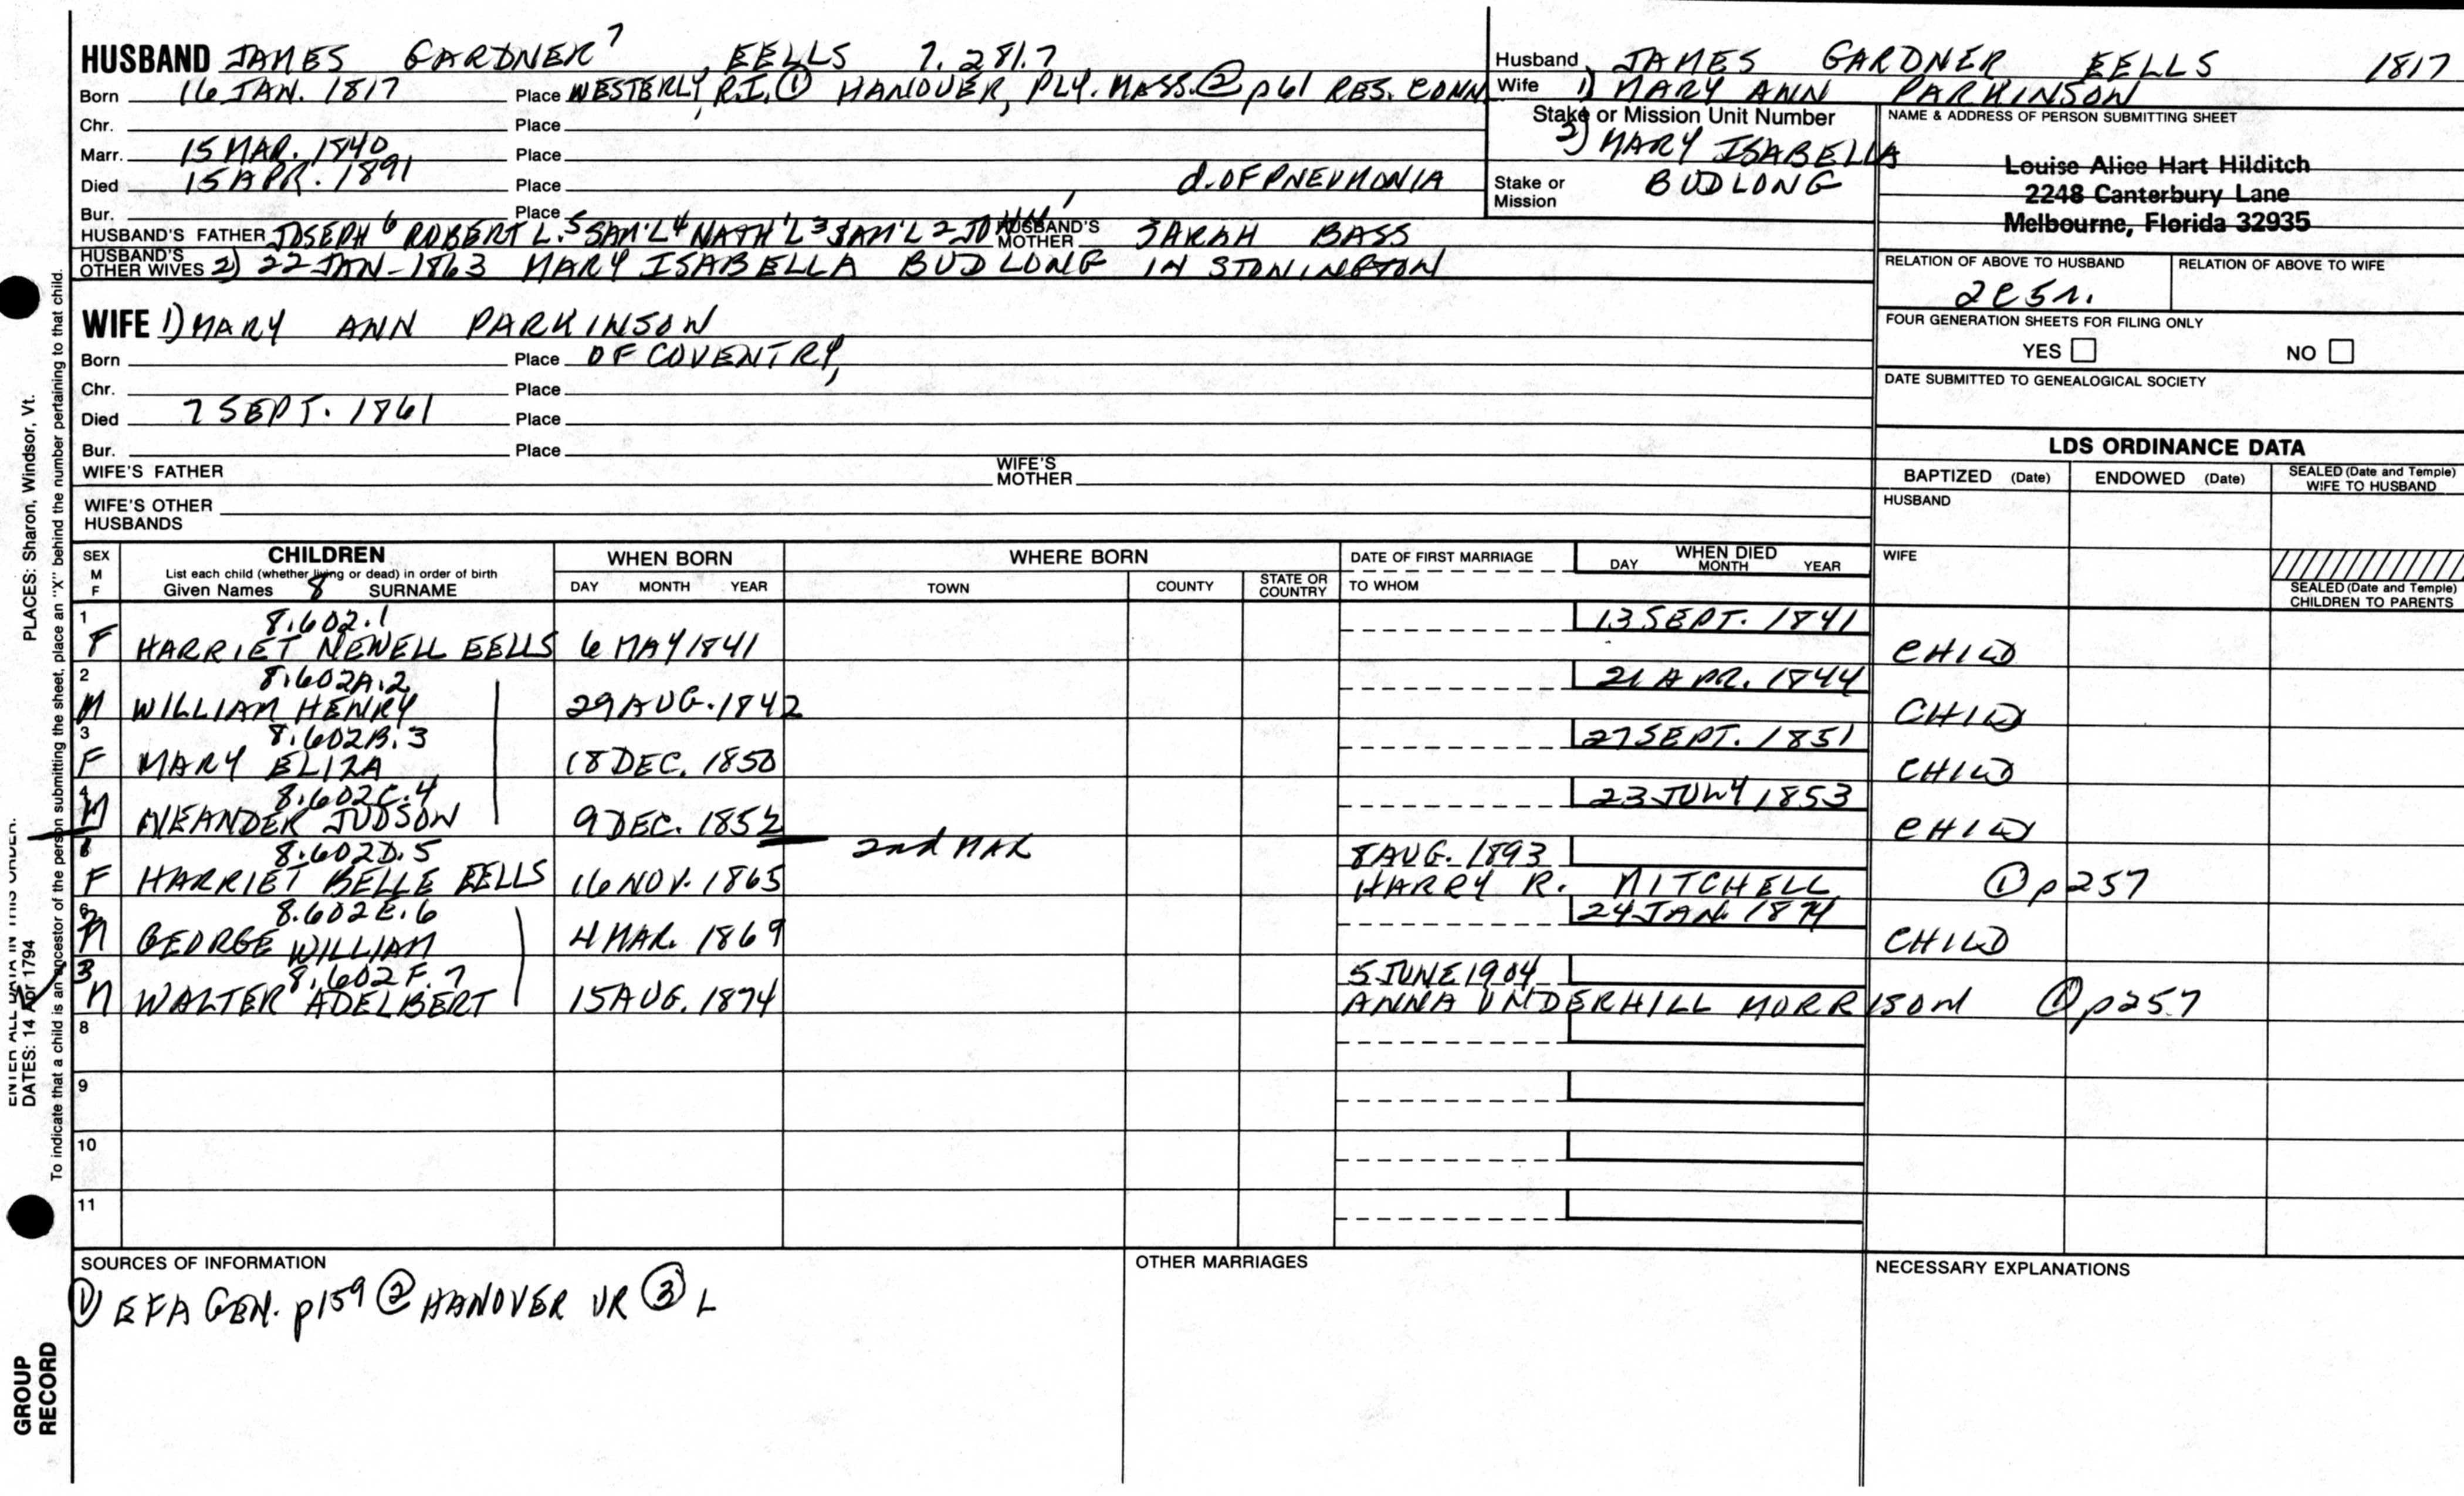 HUSBAND JAMES GARDNER 7 EELLS 7.281.7
Born 16 JAN. 1817 Place WESTERLY, R.I. ① HANOVER, PLY. MASS. ② p61 RES. CONN
Chr. Place
Marr. 15 MAR. 1840 Place
Died 15 APR. 1891 Place d. OF PNEUMONIA
Bur. Place
HUSBAND'S FATHER JOSEPH 6 ROBERT L. 5 SAM'L 4 NATH'L 3 SAM'L 2 JOHN 1 HUSBAND'S MOTHER SARAH BASS
HUSBAND'S OTHER WIVES 2) 22 JAN-1863 MARY ISABELLA BUDLONG IN STONINGTON
Husband JAMES GARDNER EELLS 1817
Wife 1) MARY ANN PARKINSON
Stake or Mission Unit Number
2) MARY ISABELLA
Stake or Mission BUDLONG
NAME & ADDRESS OF PERSON SUBMITTING SHEET
Louise Alice Hart Hilditch
2248 Canterbury Lane
Melbourne, Florida 32935
RELATION OF ABOVE TO HUSBAND RELATION OF ABOVE TO WIFE
FOUR GENERATION SHEETS FOR FILING ONLY
YES NO
DATE SUBMITTED TO GENEALOGICAL SOCIETY
WIFE 1) MARY ANN PARKINSON
Born Place OF COVENTRY,
Chr. Place
Died 7 SEPT. 1861 Place
Bur. Place
WIFE'S FATHER WIFE'S MOTHER
WIFE'S OTHER HUSBANDS
LDS ORDINANCE DATA
BAPTIZED (Date) ENDOWED (Date) SEALED (Date and Temple) WIFE TO HUSBAND
HUSBAND
WIFE
SEALED (Date and Temple) CHILDREN TO PARENTS
SEX M F CHILDREN WHEN BORN WHERE BORN DATE OF FIRST MARRIAGE WHEN DIED
List each child (whether living or dead) in order of birth
Given Names 8 SURNAME DAY MONTH YEAR TOWN COUNTY STATE OR COUNTRY TO WHOM DAY MONTH YEAR
1 8.602.1 13 SEPT. 1841
F HARRIET NEWELL EELLS 6 MAY 1841 CHILD
2 8.602A.2 21 APR. 1844
M WILLIAM HENRY 29 AUG. 1842 CHILD
3 8.602B.3 27 SEPT. 1851
F MARY ELIZA 18 DEC. 1850 CHILD
4 8.602C.4 23 JULY 1853
M NEANDER JUDSON 9 DEC. 1852 CHILD
8.602D.5 2nd MAR 8 AUG. 1893
F HARRIET BELLE EELLS 16 NOV. 1865 HARRY R. MITCHELL ① p257
8.602E.6 24 JAN. 1874
M GEORGE WILLIAM 4 MAR. 1869 CHILD
3 8.602F.7 5 JUNE 1904
M WALTER ADELBERT 15 AUG. 1874 ANNA UNDERHILL MORRISON ① p257
8
9
10
11
SOURCES OF INFORMATION OTHER MARRIAGES NECESSARY EXPLANATIONS
① EFA GEN. p159 ② HANOVER VR ③ L
PLACES: Sharon, Windsor, Vt.
To indicate that a child is an ancestor of the person submitting the sheet, place an "X" behind the number pertaining to that child.
ENTER ALL DATA IN THIS ORDER:
DATES: 14 Apr 1794
GROUP RECORD